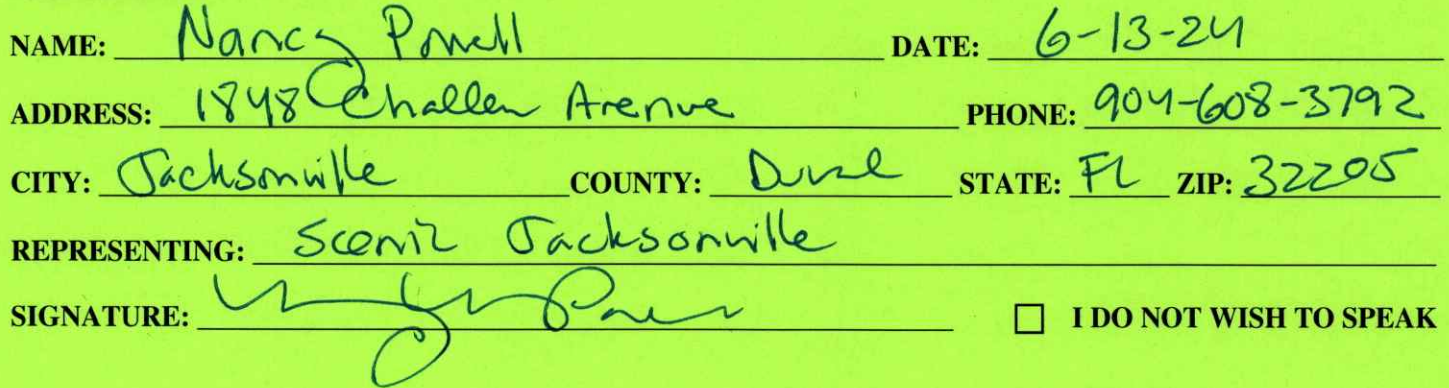 NAME: Nancy Powell DATE: 6-13-24
ADDRESS: 1848 Challen Avenue PHONE: 904-608-3792
CITY: Jacksonville COUNTY: Duval STATE: FL ZIP: 32205
REPRESENTING: Scenic Jacksonville
SIGNATURE: ☐ I DO NOT WISH TO SPEAK